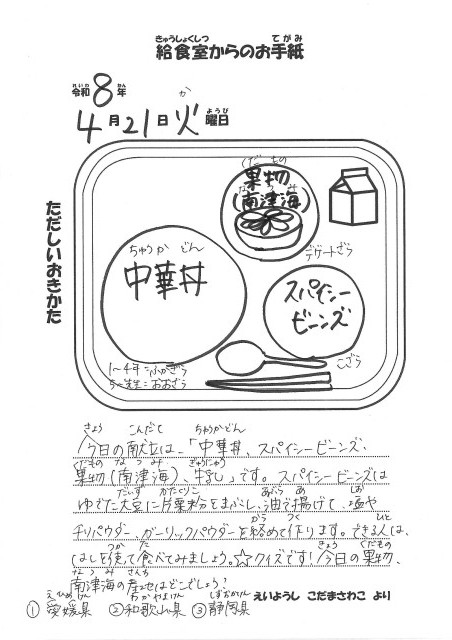 きゅうしょくしつ てがみ
給食室からのお手紙
れいわ ねん
令和8年
か ようび
4月21日火曜日
ただしいおきかた
くだもの
果物
なつみ
(南津海)
デザートざら
ちゅうか どん
中華丼
スパイシー
ビーンズ
1~4年=ふかざら
5~先生=おおざら
こざら
きょう こんだて ちゅうかどん
今日の献立は、「中華丼、スパイシービーンズ、
くだもの なつみ ぎゅうにゅう
果物(南津海)、牛乳」です。スパイシービーンズは
だいず かたくりこ あぶら あ しお
ゆでた大豆に片栗粉をまぶし、油で揚げて、塩や
から つく ひと
チリパウダー、ガーリックパウダーを絡めて作ります。できる人は、
つか た きょう くだもの
はしを使って食べてみましょう。☆クイズです!今日の果物、
なつみ さんち
南津海の産地はどこでしょう?
えひめけん わかやまけん しずおかけん
①愛媛県 ②和歌山県 ③静岡県
えいようし こだまさわこ より